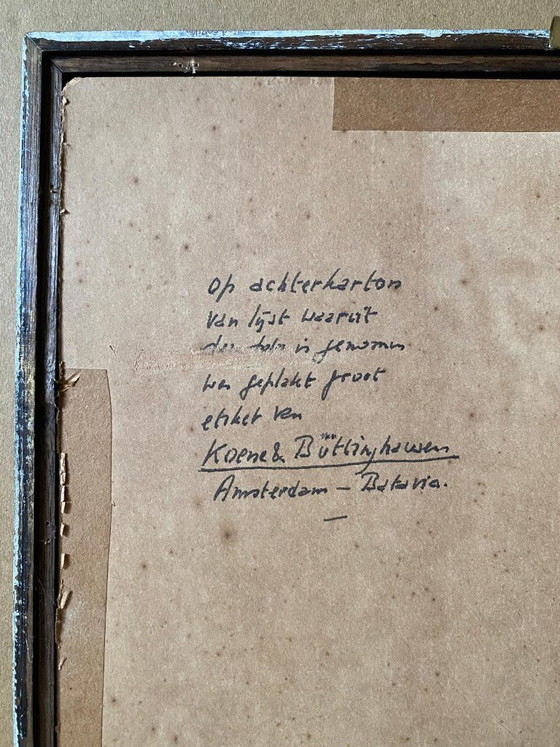 Op achterkarton
van lijst waaruit
deze foto is genomen
was geplakt groot
etiket van
Koene & Büttinghausen
Amsterdam — Batavia.
—